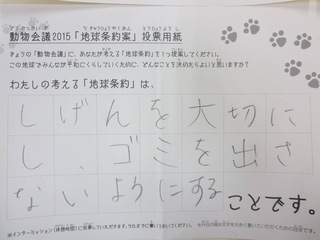 動物会議2015「地球条約案」投票用紙
きょうの「動物会議」に、あなたが考える「地球条約」を1つ提案してください。
この地球でみんなが平和にくらしていくために、どんなことを決めたらよいと思いますか?
わたしの考える「地球条約」は、
しげんを大切に
し、ゴミを出さ
ないようにする ことです。
※インターミッション(休憩時間)に投票していただきます。